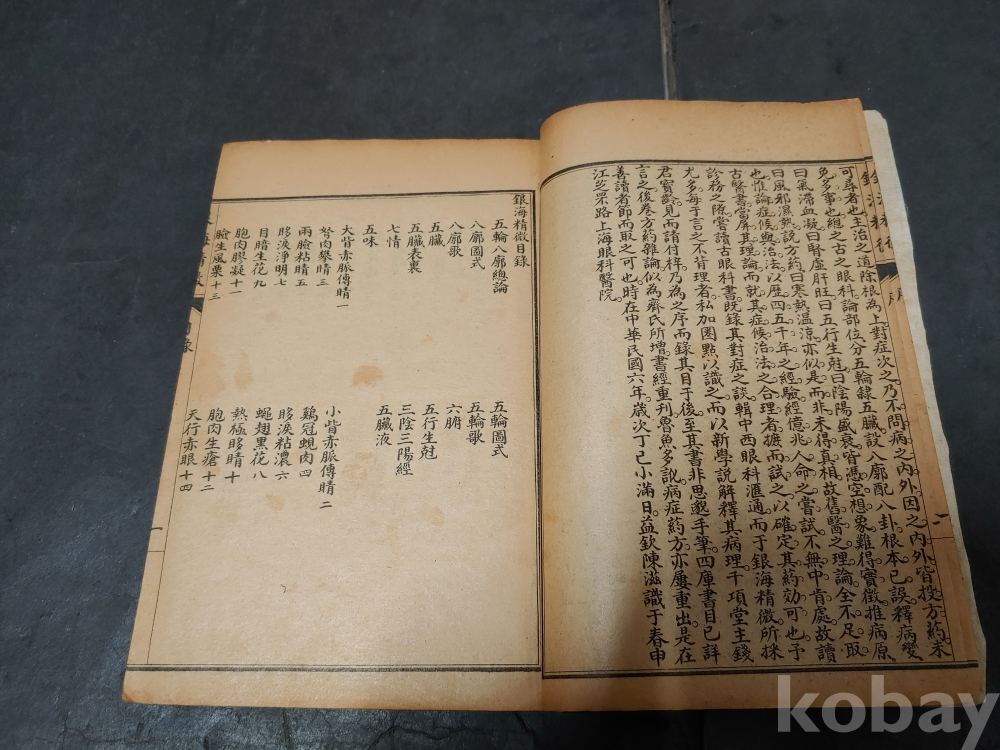 可尋者也主治之道除根為上對症次之乃不問病之內外因之內外皆投方藥未
免多事也總之古之眼科論部位分五輪隸五臟設八廓配八卦根本已誤釋病變
曰氣滯血凝曰腎虛肝旺曰五行生尅曰陰陽盛衰皆憑空想象難得實徵推病原
曰風邪濕熱說方藥曰寒熱溫涼亦似是而非未得真相故舊醫之理論全不足取
也惟論症候與治法以歷四五千年之經驗經億兆人命之嘗試不無中肯處故讀
古醫書當屏其理論而就其症候治法之合理者摭而試之以確定其藥効可也予
診務之隙嘗讀古眼科書既錄其對症之談輯中西眼科滙通而于銀海精微所採
尤多每于言之不背理者私加圈點以識之而以新學說解釋其病理千頃堂主錢
君寶齡見而請付梓乃為之序而錄其目于後至其書非思邈手筆四庫書目已詳
言之後卷方藥雜論似為齊氏所增書經重刊魯魚多訛病症藥方亦屢重出是在
善讀者節而取之可也時在中華民國六年歲次丁巳小滿日益欽陳滋識于春申
江芝罘路上海眼科醫院
銀海精微目錄
五輪八廓總論 五輪圖式
八廓圖式 五輪歌
八廓歌 六腑
五臟 五行生尅
五臟表裏 三陰三陽經
七情 五臟液
五味
大眥赤脈傳睛一 小眥赤脈傳睛二
胬肉攀睛三 鷄冠蜆肉四
兩臉粘睛五 眵淚粘濃六
眵淚淨明七 蠅翅黑花八
目暗生花九 熱極眵睛十
胞肉膠凝十一 胞肉生瘡十二
臉生風栗十三 天行赤眼十四
一
kobay